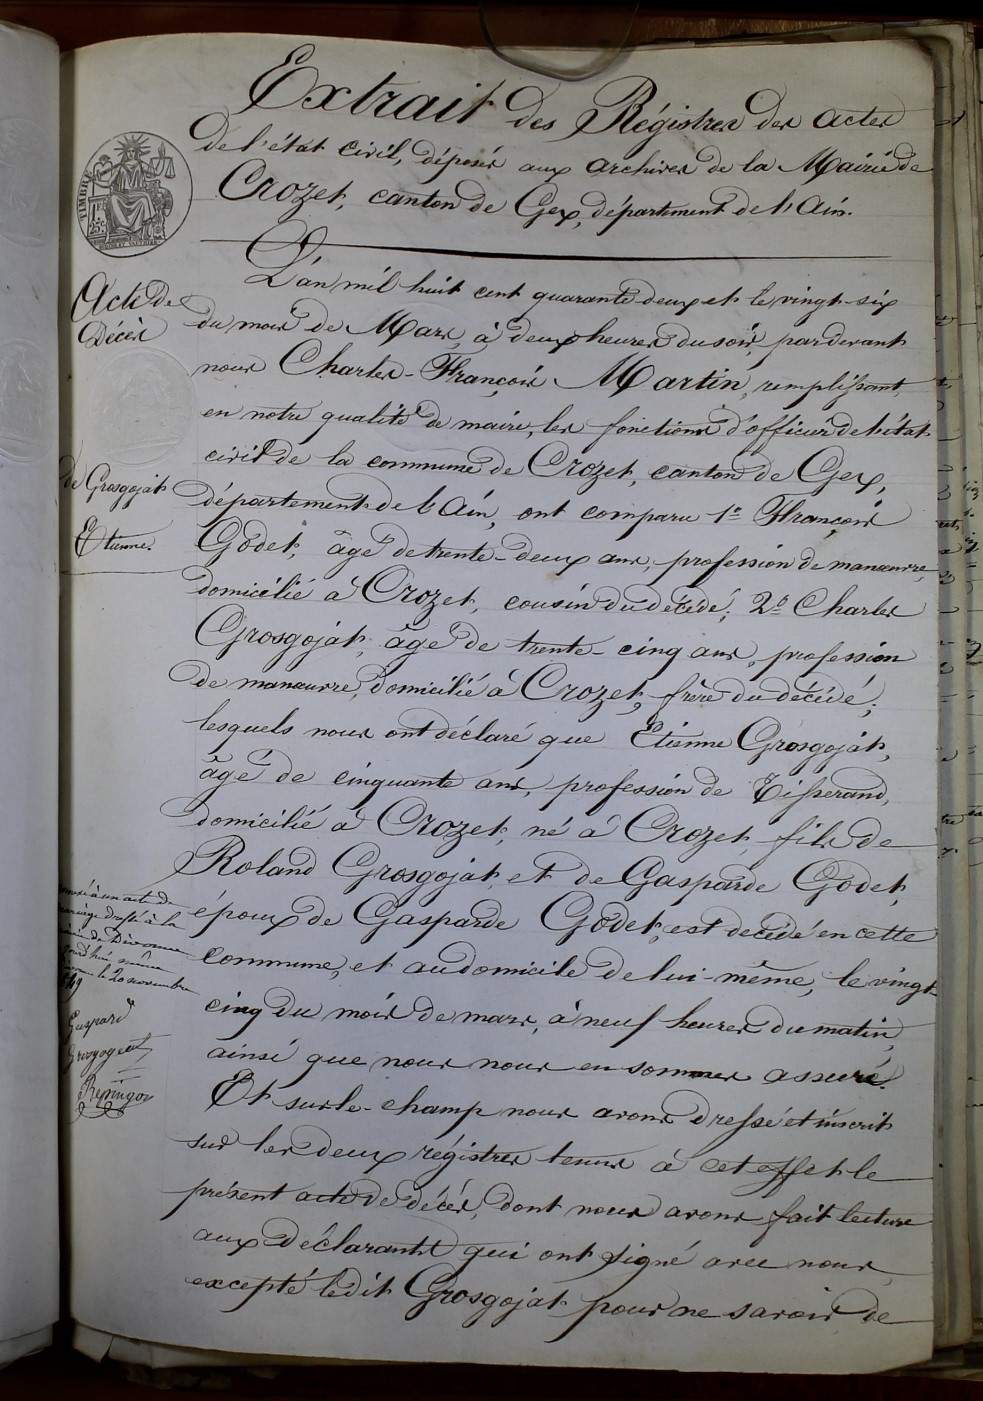 Extrait des Régistres des actes
de l'état civil, déposés aux archives de la Mairie de
Crozet, canton de Gex, département de l'Ain.
TIMBRE
1F
25c
Acte de
Décès
de Grosgojat
Etienne.
L'an mil huit cent quarante-deux et le vingt-six
du mois de Mars, à deux heures du soir, pardevant
nous Charles-François Martin, remplissant,
en notre qualité de maire, les fonctions d'officier de l'état
civil de la commune de Crozet, canton de Gex,
département de l'Ain, ont comparu 1º François
Godet, âgé de trente-deux ans, profession de manœuvre,
domicilié à Crozet, cousin du décédé; 2º Charles
Grosgojat, âgé de trente-cinq ans, profession
de manœuvre, domicilié à Crozet, frère du décédé;
lesquels nous ont déclaré que Etienne Grosgojat,
âgé de cinquante ans, profession de Tisserand,
domicilié à Crozet, né à Crozet fils de
Roland Grosgojat et de Gasparde Godet,
époux de Gasparde Godet, est décédé en cette
commune, et au domicile de lui-même, le vingt-
cinq du mois de mars, à neuf heures du matin,
ainsi que nous nous en sommes assuré.
Et sur le-champ nous avons dressé et inscrit
sur les deux régistres tenus à cet effet le
présent acte de décès, dont nous avons fait lecture
aux déclarants qui ont signé avec nous
excepté ledit Grosgojat pour ne savoir de
à un acte de
mariage à la
de Divonne
le 20 novembre
Gaspard